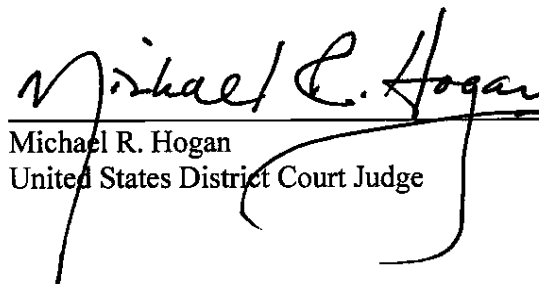 Michael R. Hogan
Michael R. Hogan
United States District Court Judge